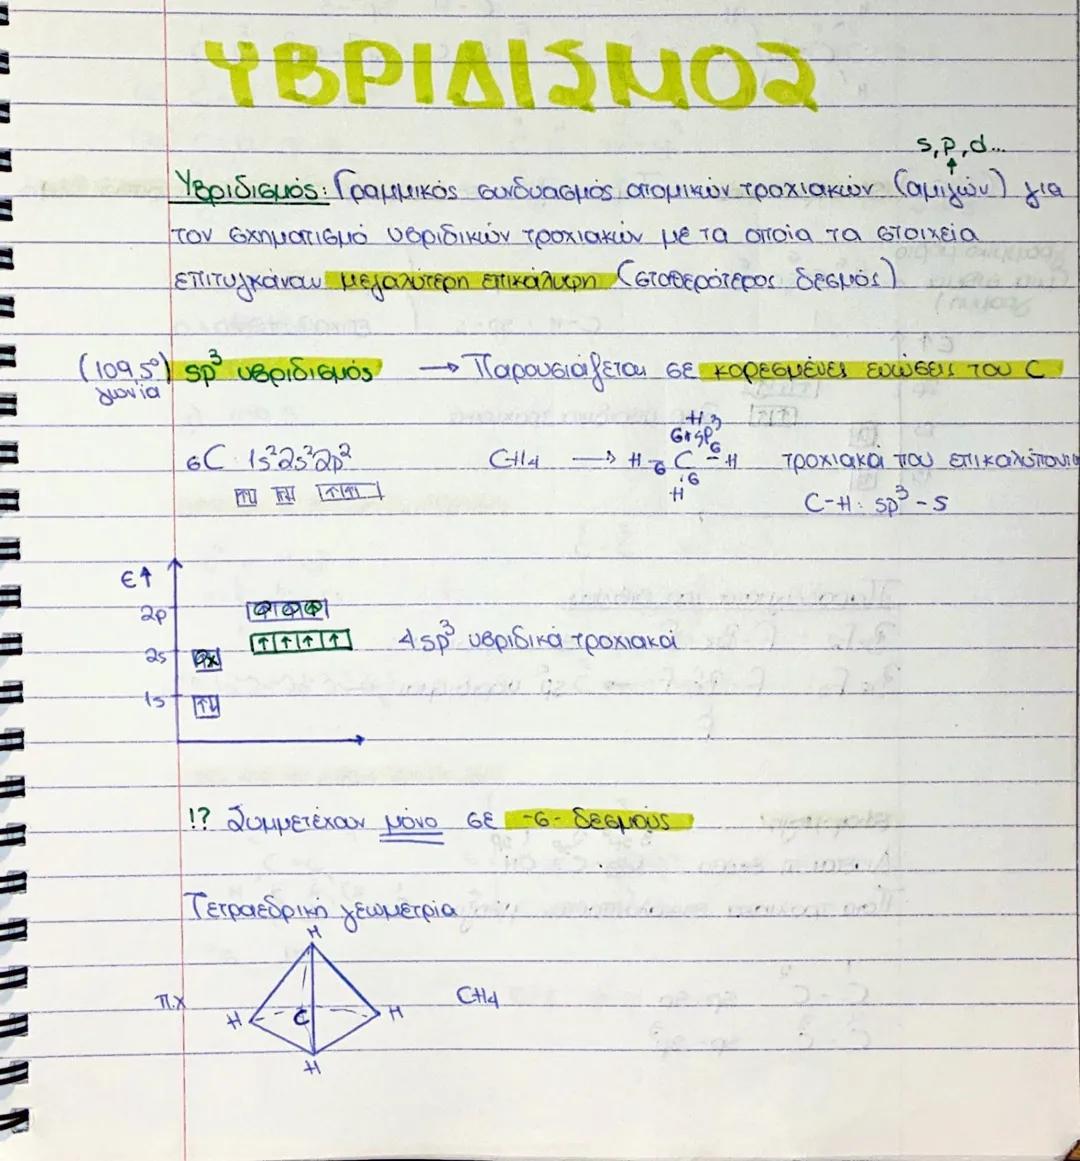 ΥΒΡΙΔΙΣΜΟΣ
s, p, d...
Υβριδισμός: Γραμμικός συνδυασμός ατομικών τροχιακών (αμιγών) για
τον σχηματισμό υβριδικών τροχιακών με τα οποία τα στοιχεία
επιτυγχάνουν μεγαλύτερη επικάλυψη (σταθερότερος δεσμός)
(109,5°) sp³ υβριδισμός → Παρουσιάζεται σε κορεσμένες ενώσεις του C
γωνία
H
σ sp³
₆C 1s²2s²2p² CH₄ → H -σ C -σ H τροχιακά που επικαλύπτονται
↑↓ ↑↓ ↑ ↑ σ
H C-H: sp³-s
E↑
2p
↑ ↑ ↑ ↑ 4 sp³ υβριδικά τροχιακά
2s
1s ↑↓
!? Συμμετέχουν μόνο σε -σ- δεσμούς
Τετραεδρική γεωμετρία
H
π.χ CH₄
H C H
H